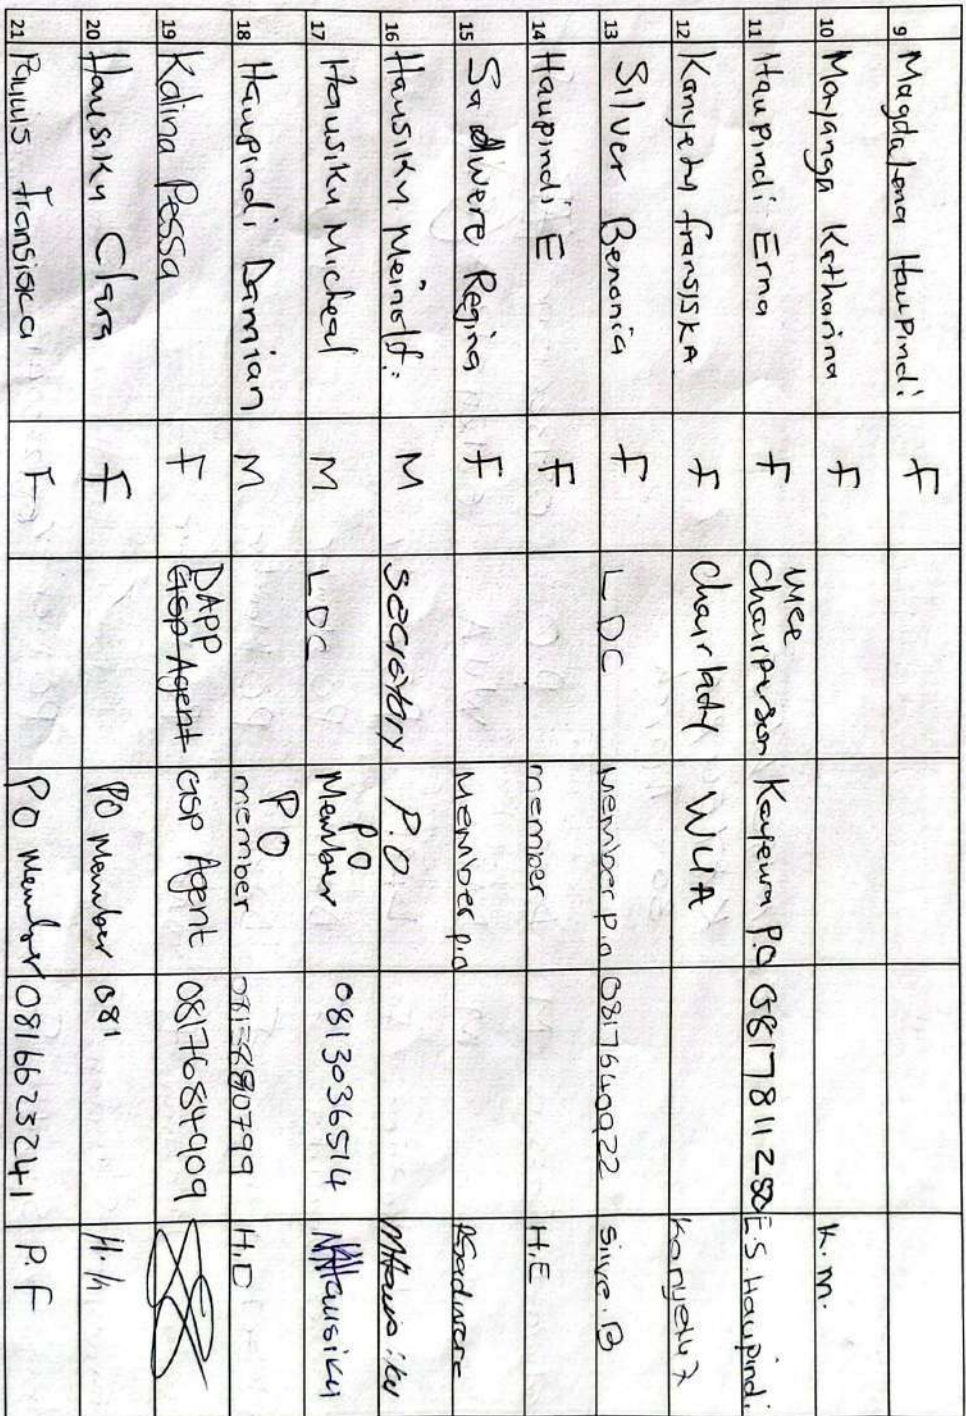 9 Magdalena Haupindi F
10 Mayanga Katharina F K.m.
11 Haupindi Erna F Vice Chairperson Kayewa P.O 0817811280 E.S. Haupindi
12 Kanyetu fransiska F Chairlady WUA Kanyetu
13 Silver Bemonia F LDC Member p.o 0817640022 Silve. B
14 Haupindi E F member H.E
15 Sadwere Regina F Member p.o RSadwere
16 Hausiku Meinolf M Secretary P.O MHausiku
17 Hausiku Micheal M LDC PO Member 0813036514 MHausiku
18 Haupindi Damian M PO member H.D
19 Kalina Pessa F DAPP GSP Agent GSP Agent 0817684909
20 Hausiku Clara F PO Member 081
21 Paulus Fransisca F PO Member 0816623241 P.F